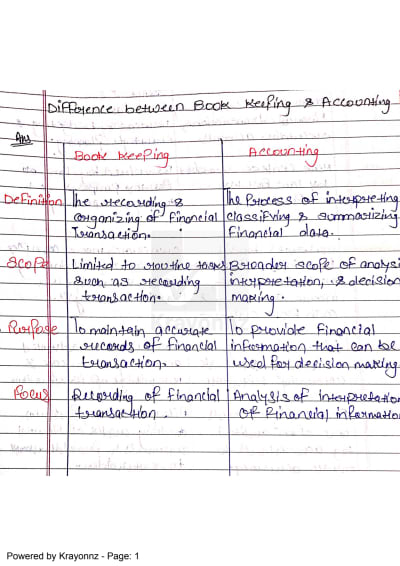 Difference between Book Keeping & Accounting
Ans
Book Keeping
Accounting
Definition
The recording &
organizing of Financial
Transaction.
The Process of interpreting
classifying & summarizing
Financial data.
Scope
Limited to routine tasks
such as recording
transaction.
Broader scope of analysis
interpretation, & decision
making.
Purpose
To maintain accurate
records of financial
transaction.
To provide Financial
information that can be
used for decision making
Focus
Recording of Financial
transaction.
Analysis of interpretation
of Financial information
Powered by Krayonnz - Page: 1